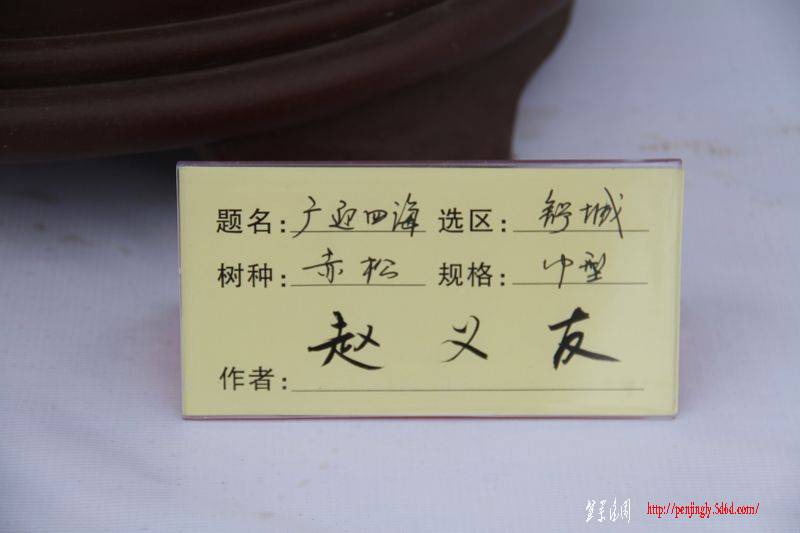 题名：广迎四海 选区：舒城
树种：赤松 规格：中型
作者：赵义友
http://penjingly.5d6d.com/